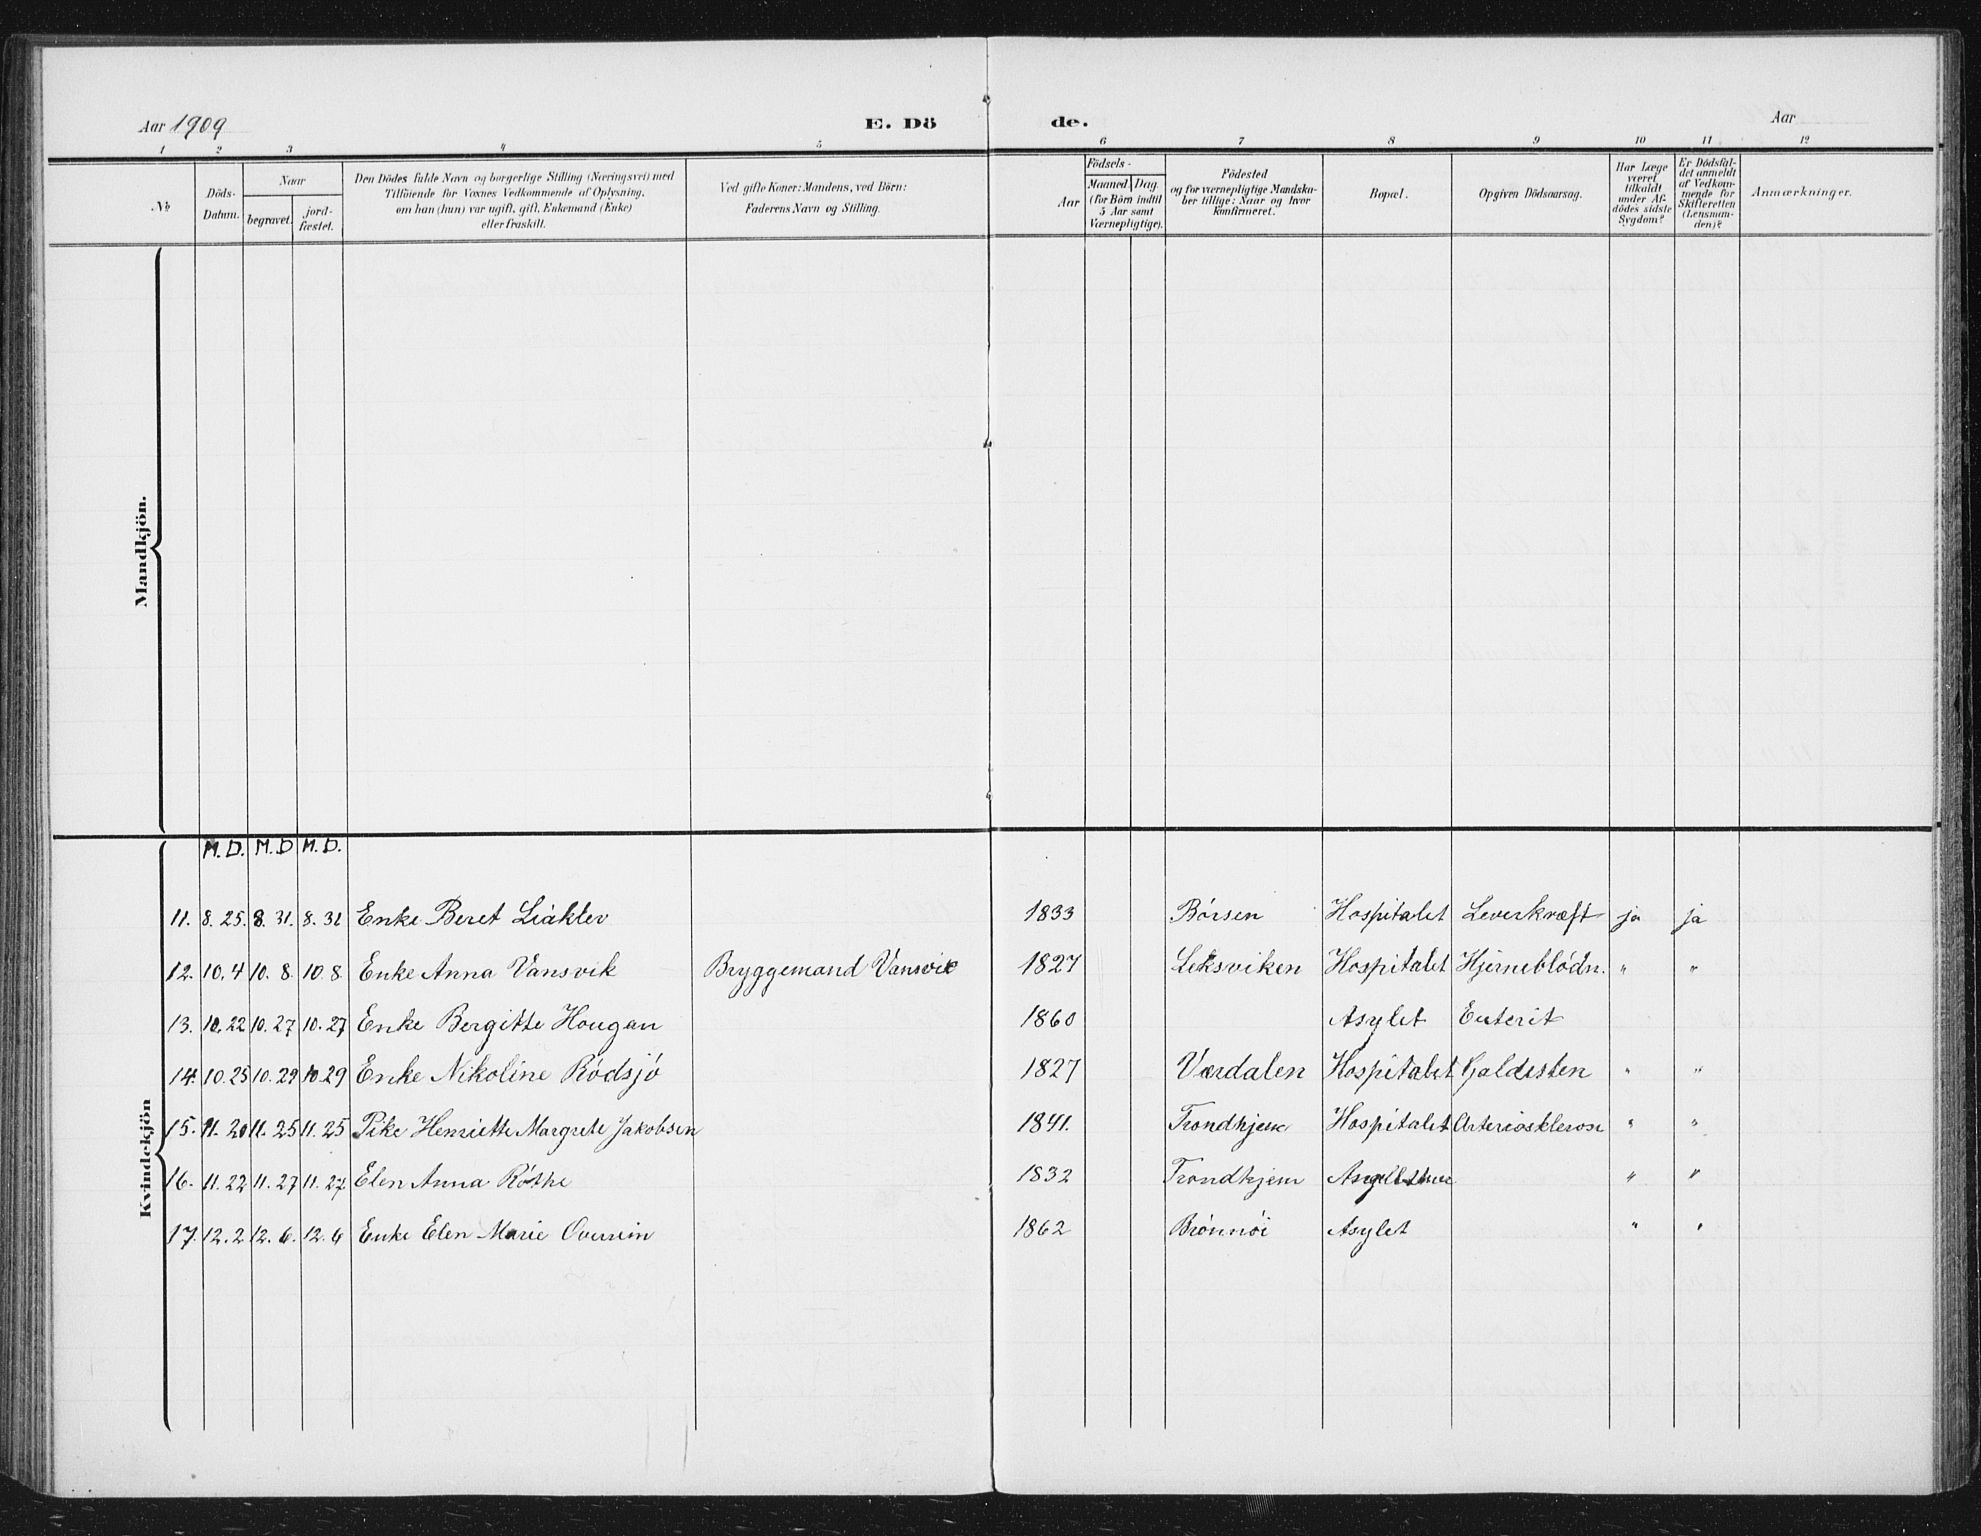 Aar 1909
E. Dö de.
Aar
1 2 3 4 5 6 7 8 9 10 11 12
№
Döds-Datum.
Naar
begravet.
jord-fæstet.
Den Dödes fulde Navn og borgerlige Stilling (Næringsvei) med
Tilföiende for Voxnes Vedkommende af Oplysning.
om han (hun) var ugift, gift, Enkemand (Enke)
eller fraskilt.
Ved gifte Koner: Mandens, ved Börn:
Faderens Navn og Stilling.
Aar
Födsels-
Maaned. Dag.
(for Börn indtil
5 Aar samt
Værnepligtige).
Födested
og for værnepligtige Mandska-
ber tillige: Naar og hvor
konfirmeret.
Bopæl.
Opgiven Dödsaarsag.
Har Læge
været
tilkaldt
under Af-
dödes sidste
Sygdom?
Er Dödsfal-
det anmeldt
af Vedkom-
mende for
Skifteretten
(Lensman-
den)?
Anmærkninger.
Mandkjön.
Kvindekjön
M. D. M. D M. D.
11. 8. 25. 8. 31. 8. 31 Enke Beret Liåkler 1833 Börsen Hospitalet Leverkræft ja ja
12. 10. 4 10. 8. 10. 8 Enke Anna Vansvik Bryggemand Vansvik 1827 Leksviken Hospitalet Hjerneblödn. " "
13. 10. 22 10. 27 10. 27 Enke Bergitte Hougan 1860 Asylet Enterit
14. 10. 25 10. 29 10. 29 Enke Nikoline Rödsjö 1827 Værdalen Hospitalet Galdesten " "
15. 11. 20 11. 25 11. 25 Pike Henriette Margrete Jakobsen 1841. Trondhjem Hospitalet Arteriosklerose " "
16. 11. 22 11. 27 11. 27 Elen Anna Röthe 1832 Trondhjem " "
17. 12. 2 12. 6. 12. 6 Enke Elen Marie Overrein 1862 Brönnöi Asylet " "